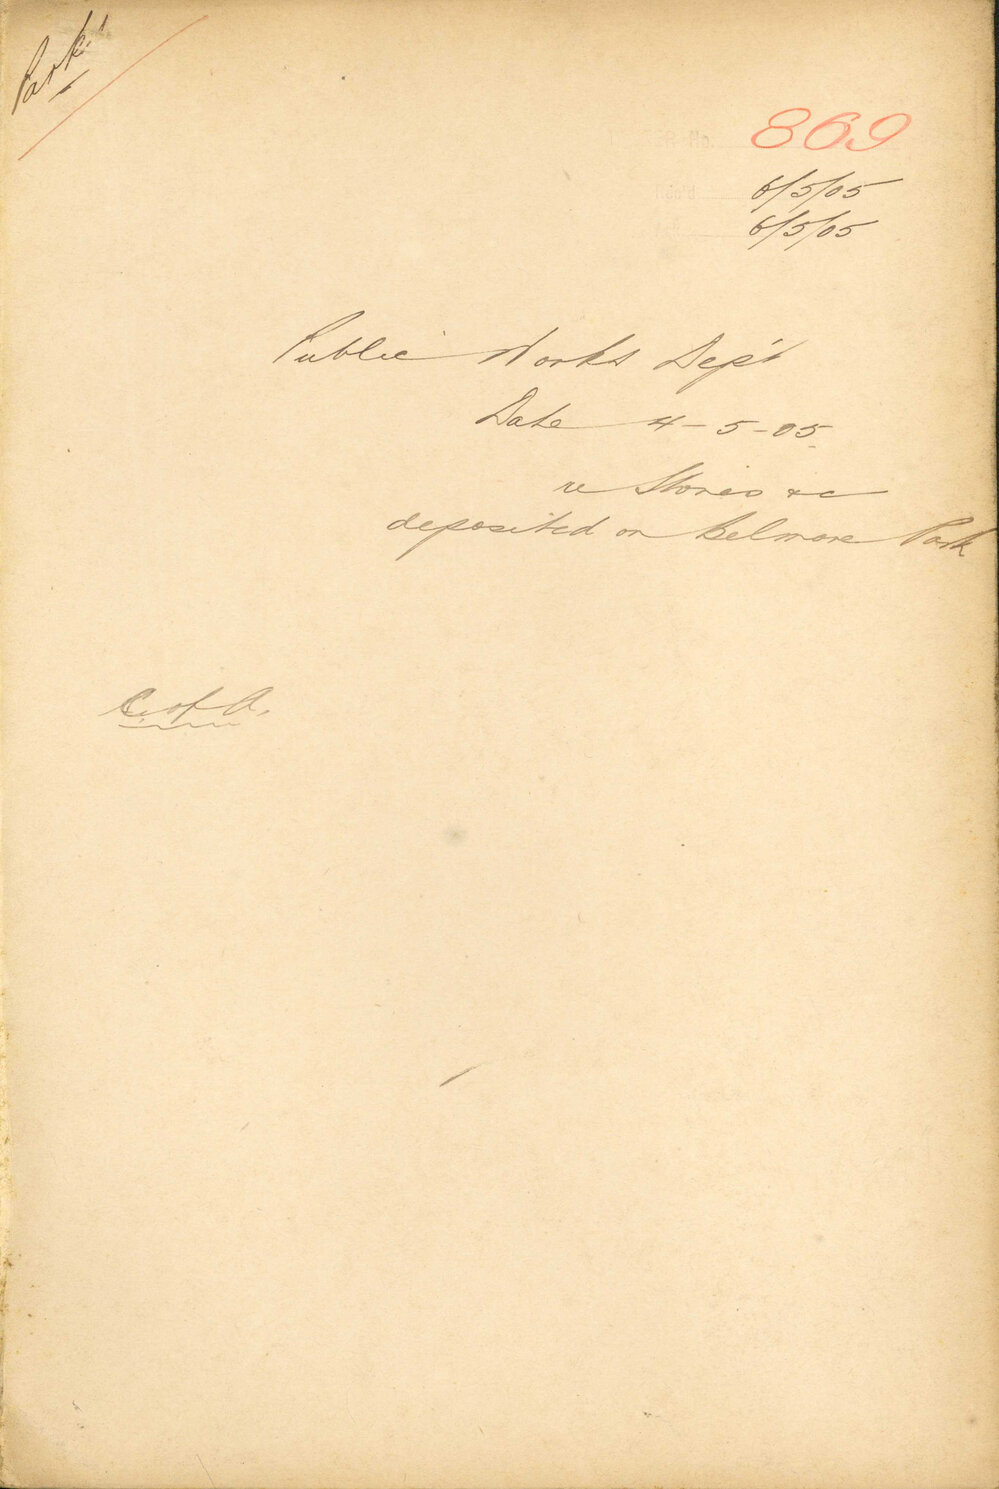 Park
869
6/5/05
6/5/05
Public Works Dept
Date 4-5-05.
re Stones &c
deposited on Belmore Park
C. of A.